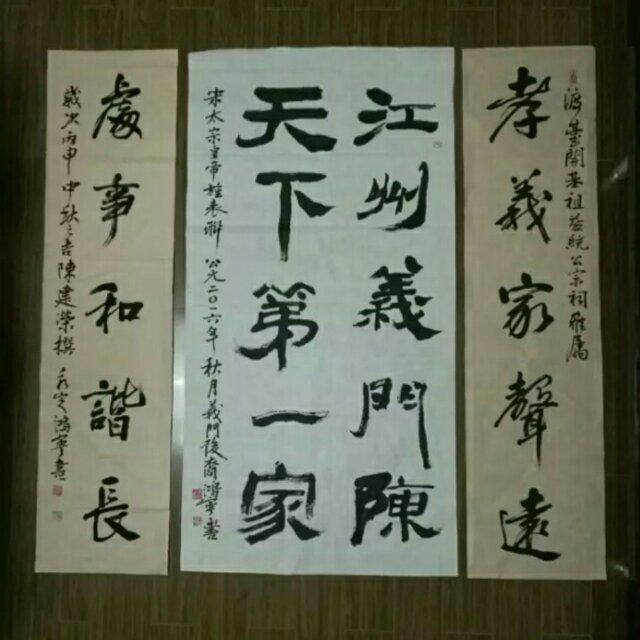 渡景開基祖益統公宗祠雅屬
孝義家聲遠
江州義門陳
天下第一家
宋太宗皇帝旌表聯 公元二〇一六年秋月義門後裔鴻寧書
處事和諧長
歲次丙申中秋吉陳建榮撰 鴻寧書